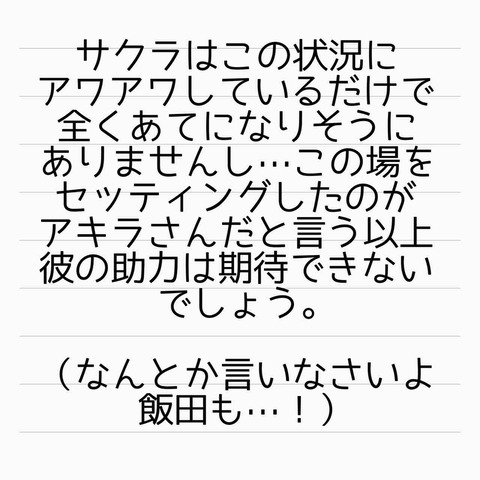 サクラはこの状況に
アワアワしているだけで
全くあてになりそうに
ありませんし…この場を
セッティングしたのが
アキラさんだと言う以上
彼の助力は期待できない
でしょう。
（なんとか言いなさいよ
飯田も…！）